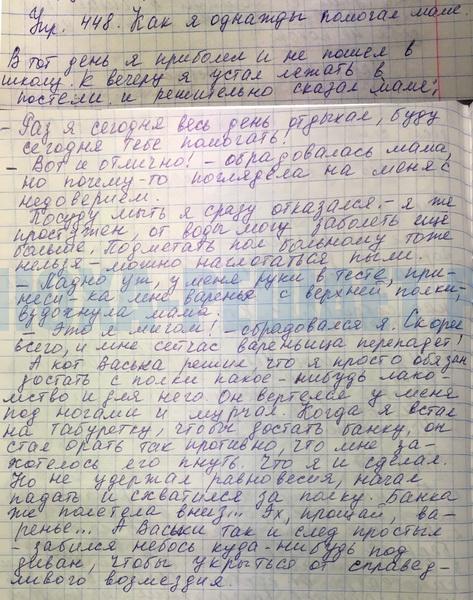 Упр. 448. Как я однажды помогал маме
В тот день я приболел и не пошел в
школу. К вечеру я устал лежать в
постели и решительно сказал маме:
– Раз я сегодня весь день отдыхал, буду
сегодня тебе помогать!
– Вот и отлично! – обрадовалась мама,
но почему-то поглядела на меня с
недоверием.
Посуду мыть я сразу отказался – я же
простужен, от воды могу заболеть еще
больше. Подметать пол больному тоже
нельзя – можно наглотаться пыли.
– Ладно уж, у меня руки в тесте, при-
неси-ка мне варенье с верхней полки, –
вздохнула мама.
Это я мигом! – обрадовался я. Скорее
всего, и мне сейчас вареньица перепадет!
А кот Васька решил, что я просто обязан
достать с полки какое-нибудь лако-
мство и для него. Он вертелся у меня
под ногами и мурчал. Когда я встал
на табуретку, чтобы достать банку, он
стал орать так противно, что мне за-
хотелось его пнуть. Что я и сделал.
Но не удержал равновесия, начал
падать и схватился за полку. Банка
же полетела вниз... Эх, прощай, ва-
ренье... А Васьки так и след простыл
– забился небось куда-нибудь под
диван, чтобы укрыться от справед-
ливого возмездия.